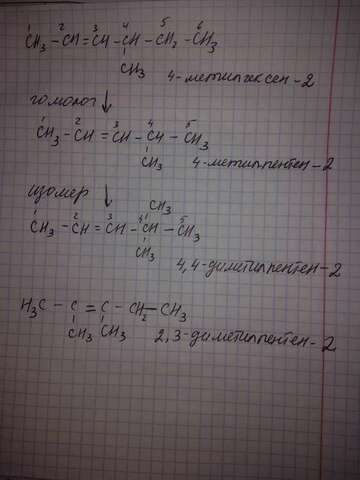 1 2 3 4 5 6
CH₃ – CH = CH – CH – CH₂ – CH₃
CH₃
4-метилгексен-2
гомолог ↓
1 2 3 4 5
CH₃ – CH = CH – CH – CH₃
CH₃
4-метилпентен-2
изомер ↓
CH₃
1 2 3 4 5
CH₃ – CH = CH – CH – CH₃
CH₃
4,4-диметилпентен-2
H₃C – C = C – CH₂ – CH₃
CH₃ CH₃
2,3-диметилпентен-2